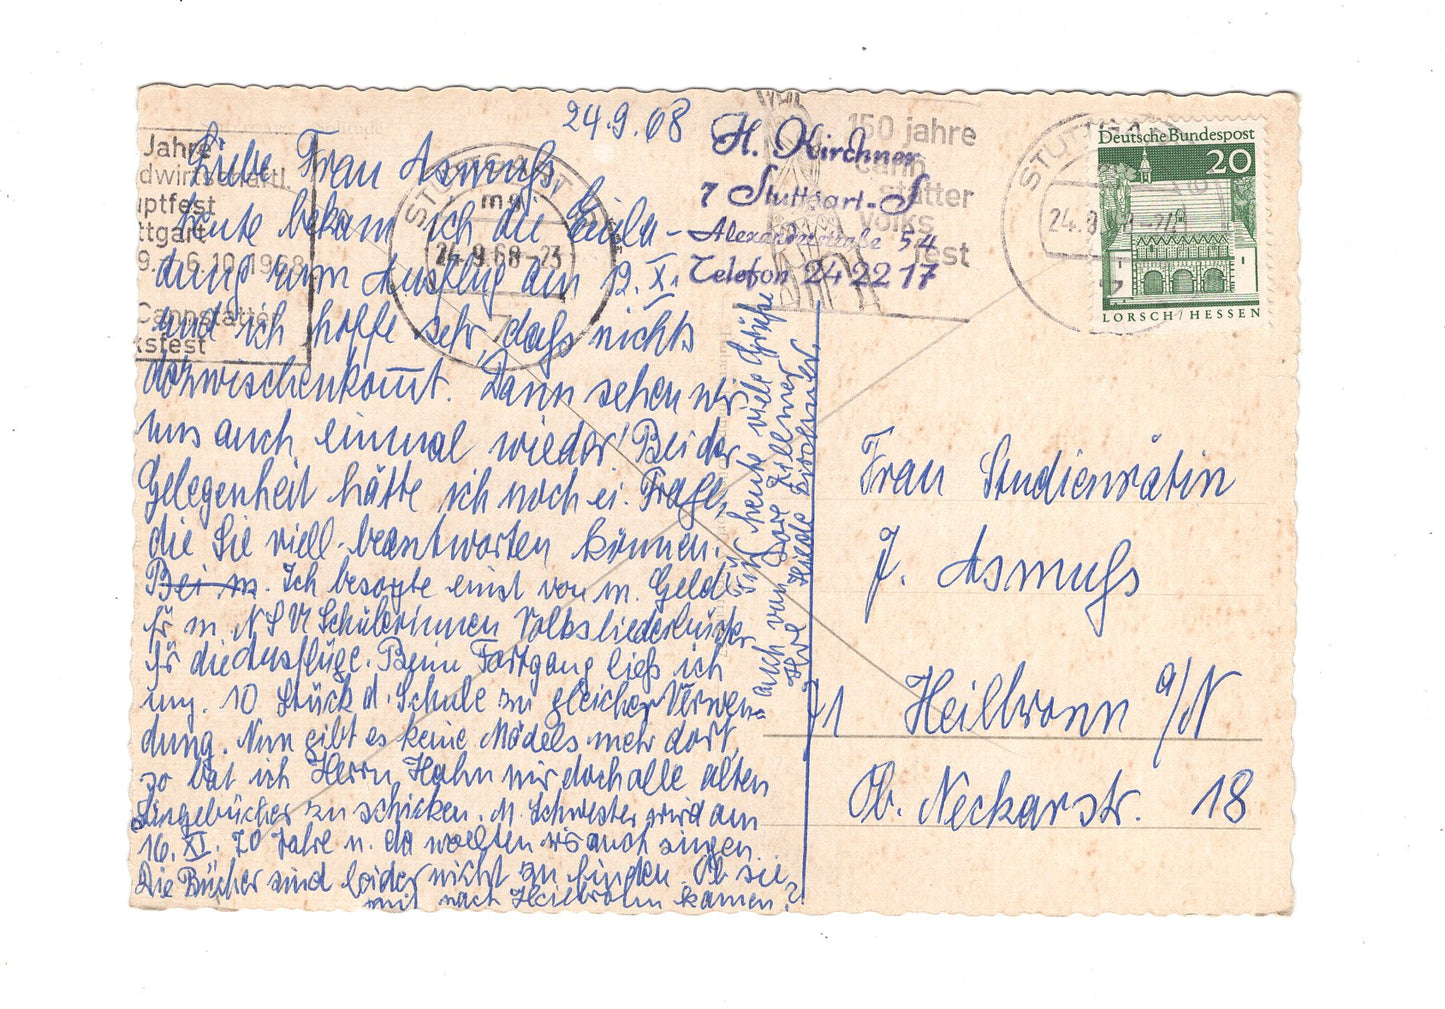 24.9.68
Liebe Frau Asmuß,
heute bekam ich die Einla-
dung zum Ausflug am 12. X.
und ich hoffe sehr, daß nichts
dazwischenkommt. Dann sehen wir
uns auch einmal wieder! Bei der
Gelegenheit hätte ich noch ei. Frage,
die Sie viell. beantworten können.
Bei m. Ich besorgte einst von m. Geld
für m. Schülerinnen Volksliederbücher
für die Ausflüge. Beim Fortgang ließ ich
ung. 10 Stück d. Schule zu gleicher Verwen-
dung. Nun gibt es keine Mädels mehr dort,
so bat ich Herrn Hahn mir doch alle alten
Singebücher zu schicken. M. Schwester wird am
16. XI. 70 Jahre u. da wollten wir auch singen.
Die Bücher sind leider nicht zu finden. Ob sie
mit nach Heilbronn kamen?
Für heute viele Grüße
auch von Dore Zillmer
Ihre Hilde Kirchner
H. Kirchner
7 Stuttgart-S
Alexanderstraße 54
Telefon 24 22 17
Jahre
dwirtschaftl.
uptfest
ttgart
9.-6.10.1968
Cannstatter
ksfest
STUTTGART
24.-9.68-23
7
150 jahre
cann
statter
volks
fest
STUTTGART
24.9.68-2
Deutsche Bundespost
20
LORSCH/HESSEN
Frau Studienrätin
J. Asmuß
71 Heilbronn a/N
Ob. Neckarstr. 18